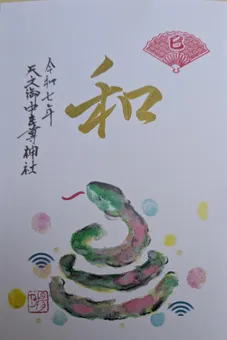 巳
和
令和七年
天之御中主尊神社